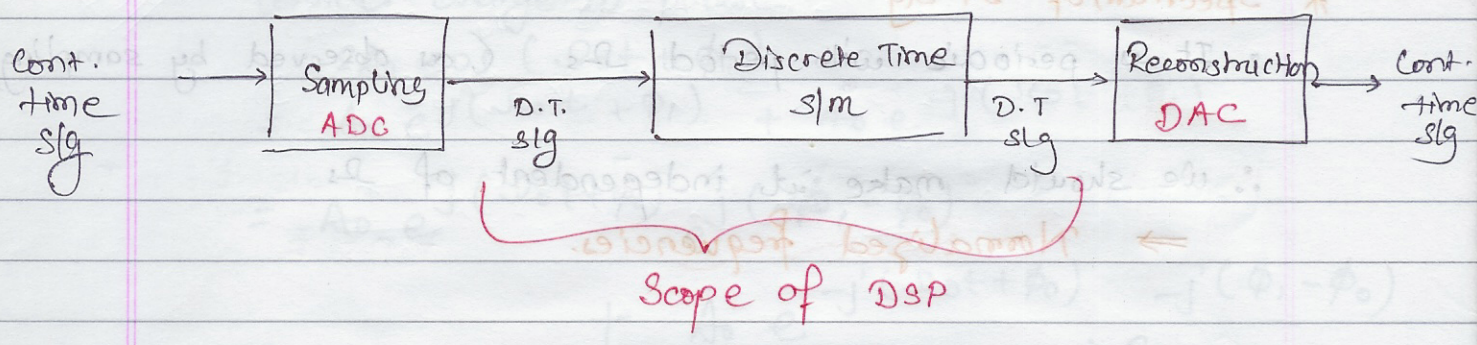 Cont.
time
s/g
Sampling
ADC
D.T.
s/g
Discrete Time
s/m
D.T
s/g
Reconstruction
DAC
Cont.
time
s/g
Scope of DSP